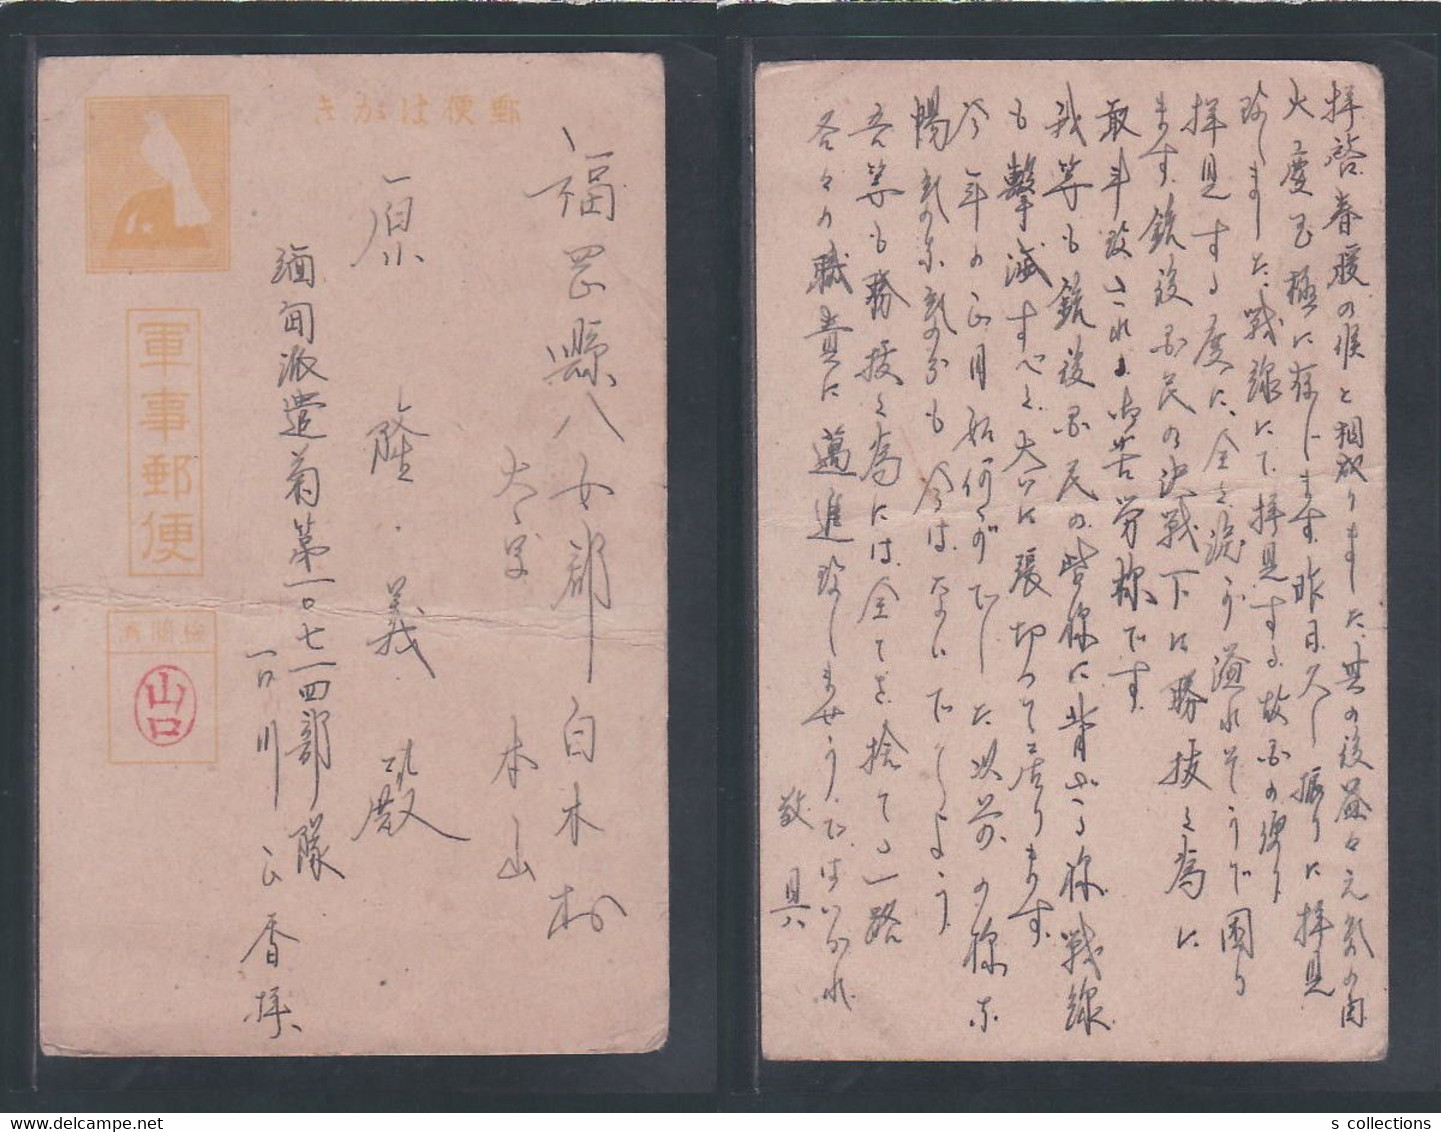 郵便はがき
福岡縣八女郡白木村
大字 本山
原 隆義 殿
緬甸派遣菊第一〇七一四部隊
香拝
軍事郵便
検閲済
山口
拝啓 春暖の候と相成りました。其の後益々元気の由
大慶至極に存じます。昨日久し振りに拝見
致しました。戦線にて拝見する故国の便り
拝見する度に、全く涙が溢れそうで困り
ます。銃後国民の決戦下に勝抜く為に
敢斗致される御苦労様です。
我等も銃後国民の皆様に背かる様戦線
も撃滅すべく大いに張切つて居ります。
今年の正月始何々がでした以前の様な
暢気な気分も今はないでしよう。
吾等も勝抜く為には全てを捨てゝ一路
各々の職責に邁進致しませうではいかれ
敬具
s collections